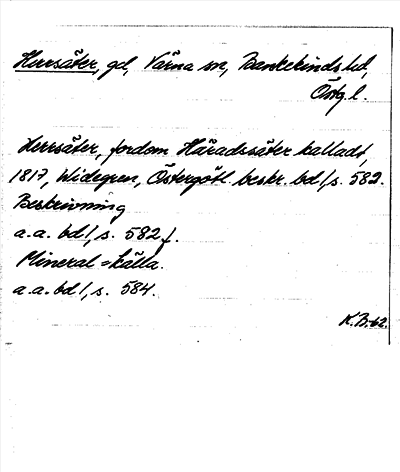 Herrsäter, gd, Värna sn, Bankekinds hd,
Östg. l.
Herrsäter, fordom Häradssäter kalladt,
1817, Widegren, Östergötl. beskr. bd 1, s. 582.
Beskrivning
a.a. bd 1, s. 582 f.
Mineral=källa.
a.a. bd 1, s. 584.
K.B. 62.